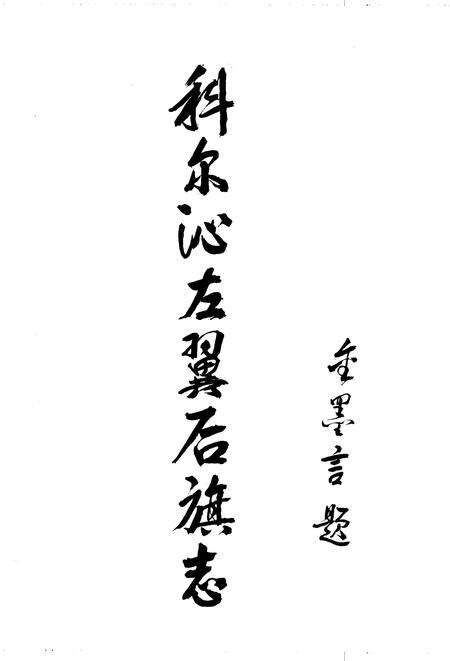 科尔沁左翼后旗志
金墨言题